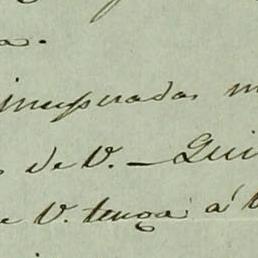 a.
inesperadas m
de V. — Qui
e V. tença á